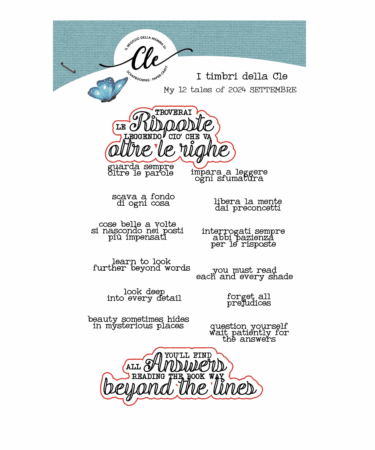 IL MAGICO DELLA MAMMA DI
Cle
SCRAPBOOKING - PAPER CRAFT
I timbri della Cle
My 12 tales of 2024 SETTEMBRE
TROVERAI
LE Risposte
LEGGENDO CIO' CHE VA
oltre le righe
guarda sempre
oltre le parole
impara a leggere
ogni sfumatura
scava a fondo
di ogni cosa
libera la mente
dai preconcetti
cose belle a volte
si nascondo nei posti
più impensati
interrogati sempre
abbi pazienza
per le risposte
learn to look
further beyond words
you must read
each and every shade
look deep
into every detail
forget all
prejudices
beauty sometimes hides
in mysterious places
question yourself
wait patiently for
the answers
YOU'LL FIND
ALL Answers
READING THE BOOK WAY
beyond the lines